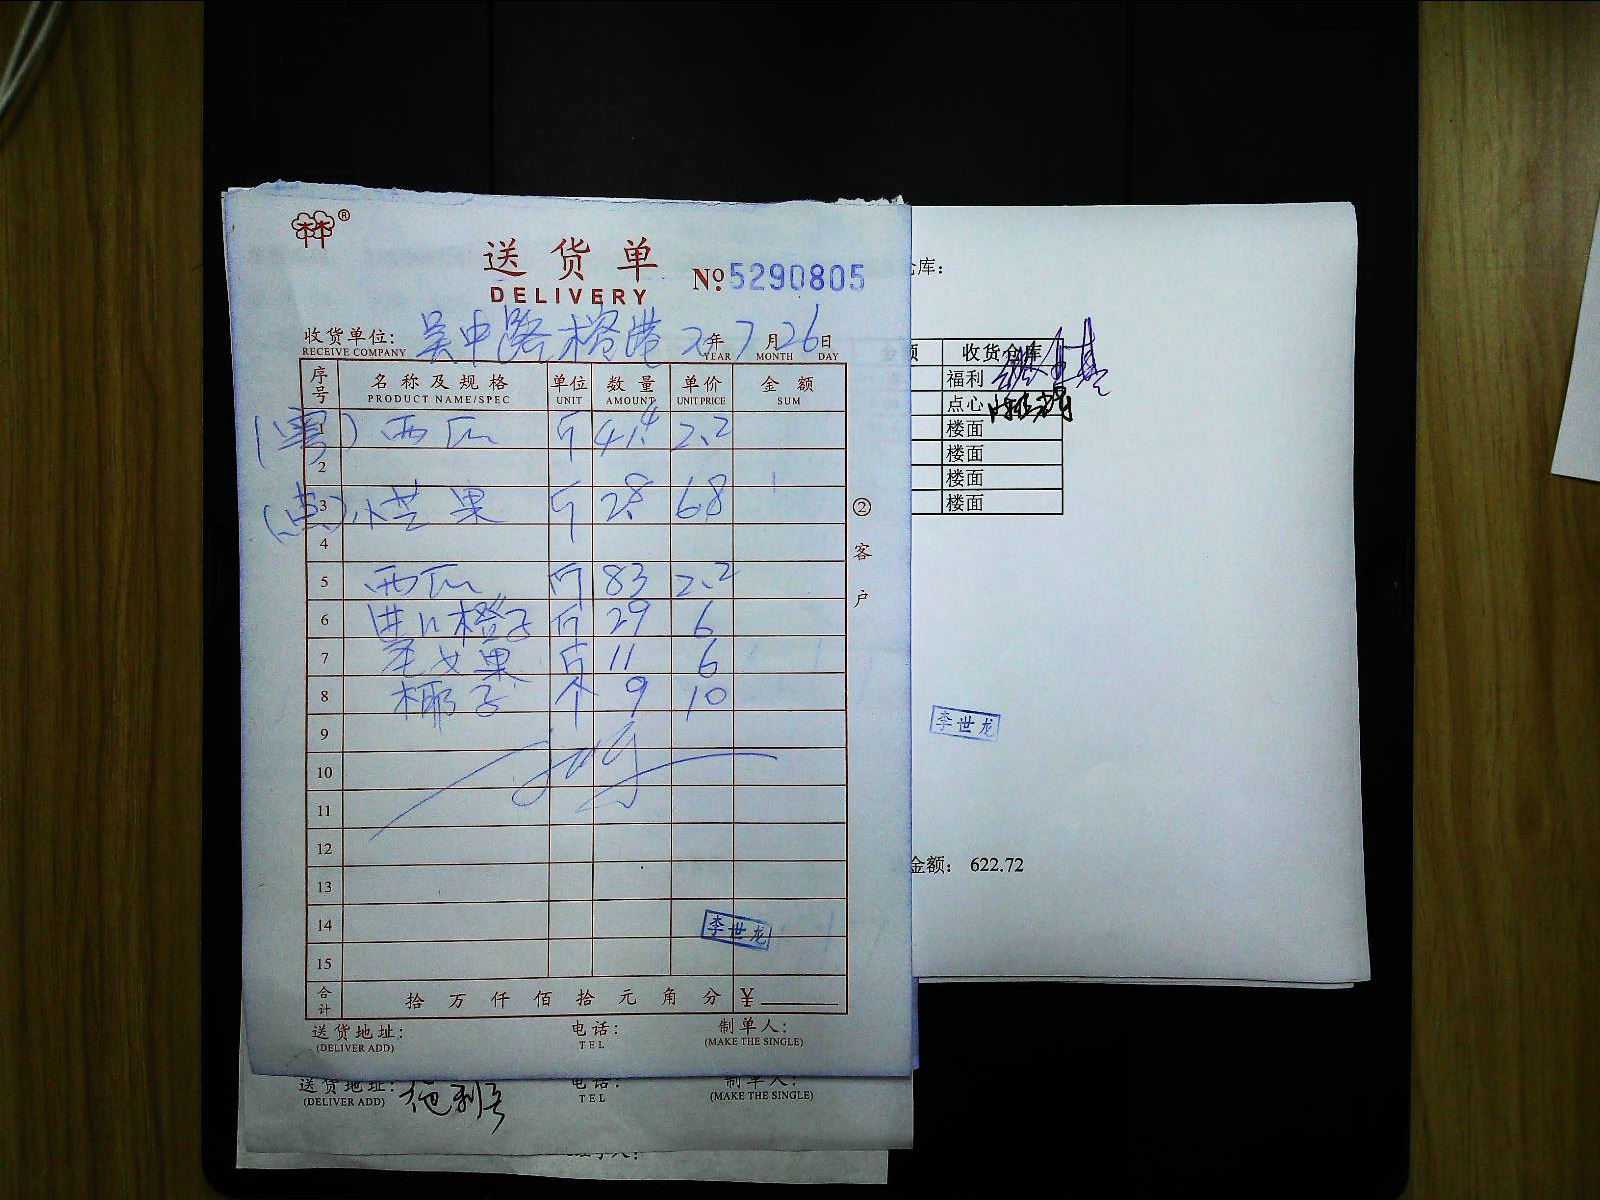 送货单
DELIVERY
№ 5290805
收货单位: 吴中路 2年7月26日
RECEIVE COMPANY YEAR MONTH DAY
序号 名称及规格 单位 数量 单价 金额
PRODUCT NAME/SPEC UNIT AMOUNT UNIT PRICE SUM
1 西瓜 斤 41.4 2.2
2
3 (点) 小芒果 斤 2.8 6.8
4
5 西瓜 斤 83 2.2
6 进口橙子 斤 29 6
7 圣女果 斤 11 6
8 椰子 个 9 10
9
10
11
12
13
14
15
李世龙
合计 拾万仟佰拾元角分 ¥
送货地址: 电话: 制单人:
(DELIVER ADD) TEL (MAKE THE SINGLE)
② 客户
送货地址: 电话: 制单人:
(DELIVER ADD) TEL (MAKE THE SINGLE)
仓库:
额 收货仓库
福利
点心
楼面
楼面
楼面
楼面
李世龙
金额: 622.72